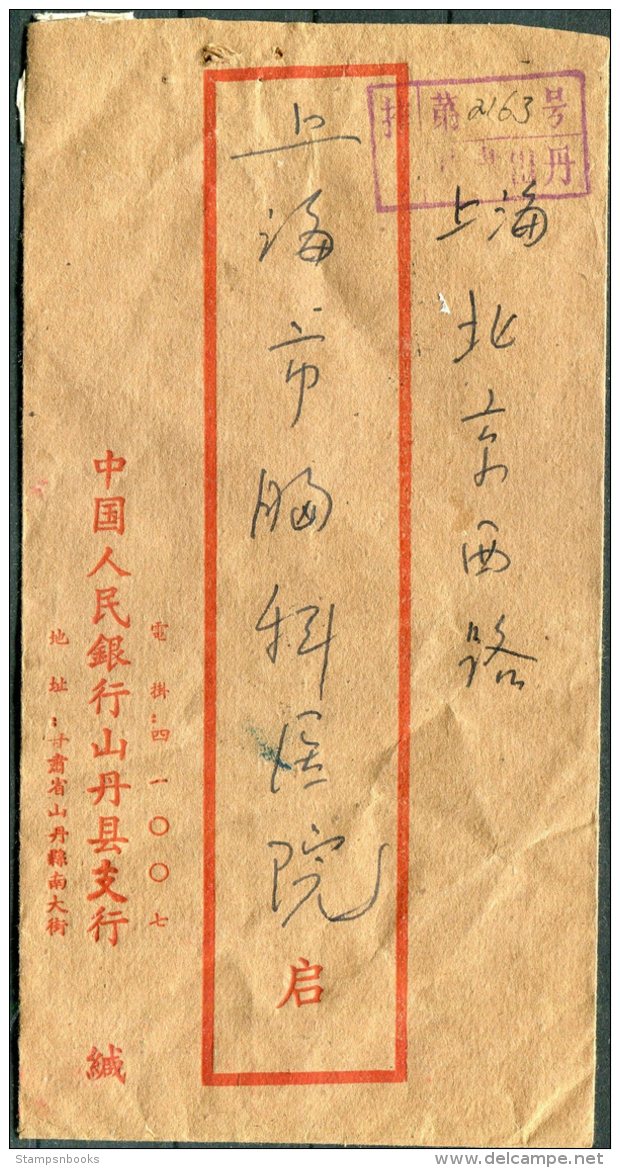 挂 第 2163 号
山丹
上海北京西路
上海市胸科医院
启
電掛:四一〇〇七
中国人民銀行山丹县支行 緘
地址:甘肃省山丹縣南大街
Stampsnbooks
delcampe.net